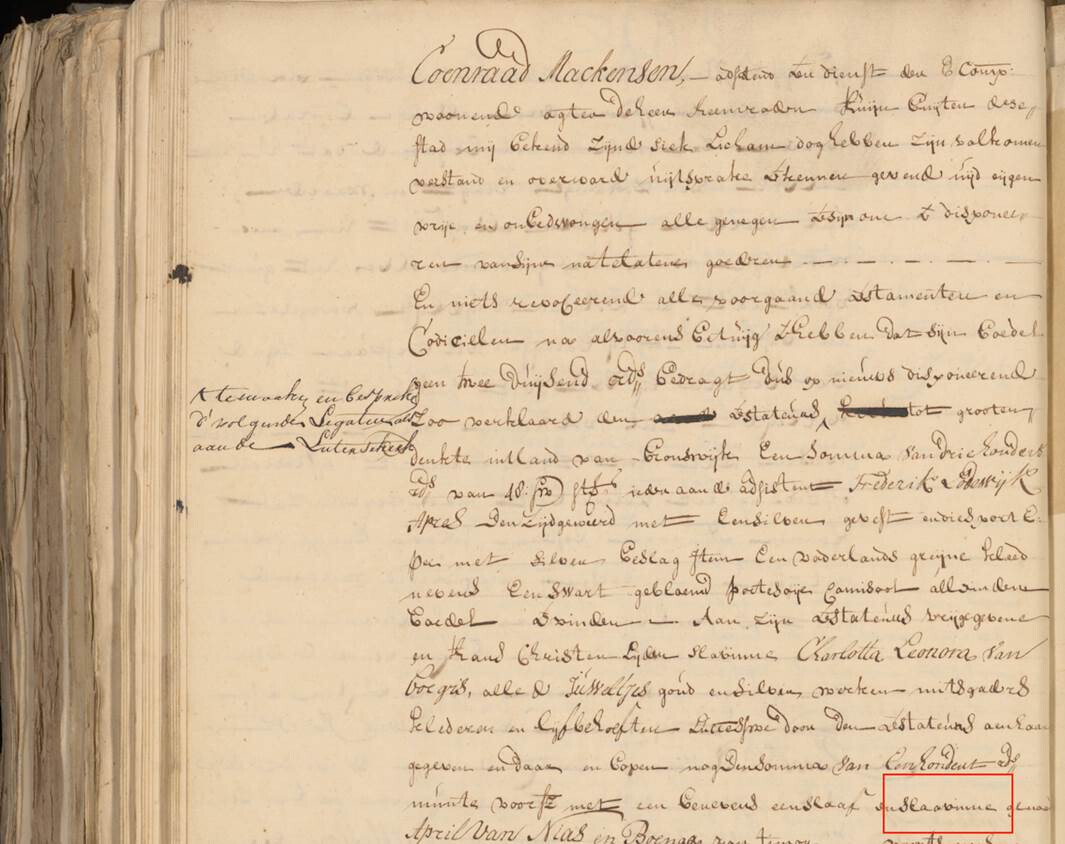 Coenraad Mackensen, adsistend in dienst der E Comp:
woonende agter de heer heemraden Kruijs Cuijten deser
stad mij bekend Zijnde siek Lichaam dog hebben Zijn volkomen
verstand en overward uijtsprake te kennen gevend uijd eijgen
vrije en onbedwongen alle genegen te sijn om te disponee-
ren van Sijne natelatene goederen
En niets revoceerend alle voorgaand testamenten en
Codicillen na alvoorens betuijg t hebben dat Sijn Boedel
geen twee Duijsend rds bedragt dus op nieuws disponeerende
te maaken en bespreken
d' volgende Legaten als
aan de Luterse kerk
Zoo verklaard den testateur tot grooten
denkte int land van Bronswijk Een Somma van drie honderd
rds van 48: st ieder aan d' adsistent Frederik Lodewijk
Apres Den zijdgeweerd met Een silver gevest en
met silver beslag Item Een vaderlands greijne kleed
nevens Een Swart gebloemd camisool all in den
Boedel te vinden Aan zijn testateurs vrijgegevene
en Christen Lijder slavinne Charlotta Leonora van
Boegis, alle d' Juweeltjes goud en silver werken mitsgaders
klederen en lijfbehoeften door den testateur aen haar
gegeven en daar en boven nog Den somma van Een hondert rds
munte voorsz met een benevens een slaaf en slaavinne genaamd
April Van Nias en Boenga van timor